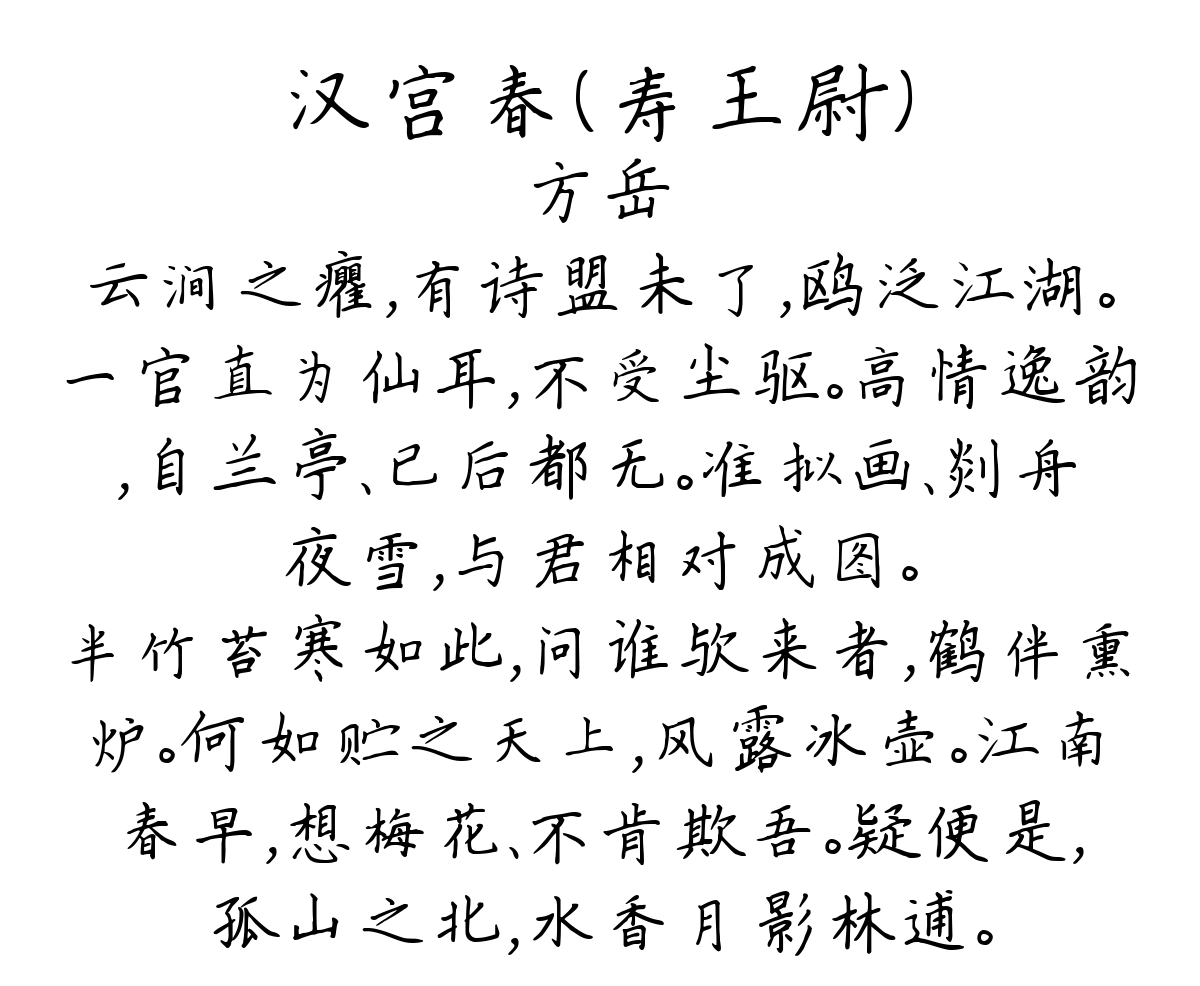 汉宫春(寿王尉)
方岳
云涧之癯,有诗盟未了,鸥泛江湖。
一官直为仙耳,不受尘驱。高情逸韵
,自兰亭、已后都无。准拟画、剡舟
夜雪,与君相对成图。
半竹苔寒如此,问谁欤来者,鹤伴熏
炉。何如贮之天上,风露冰壶。江南
春早,想梅花、不肯欺吾。疑便是,
孤山之北,水香月影林逋。